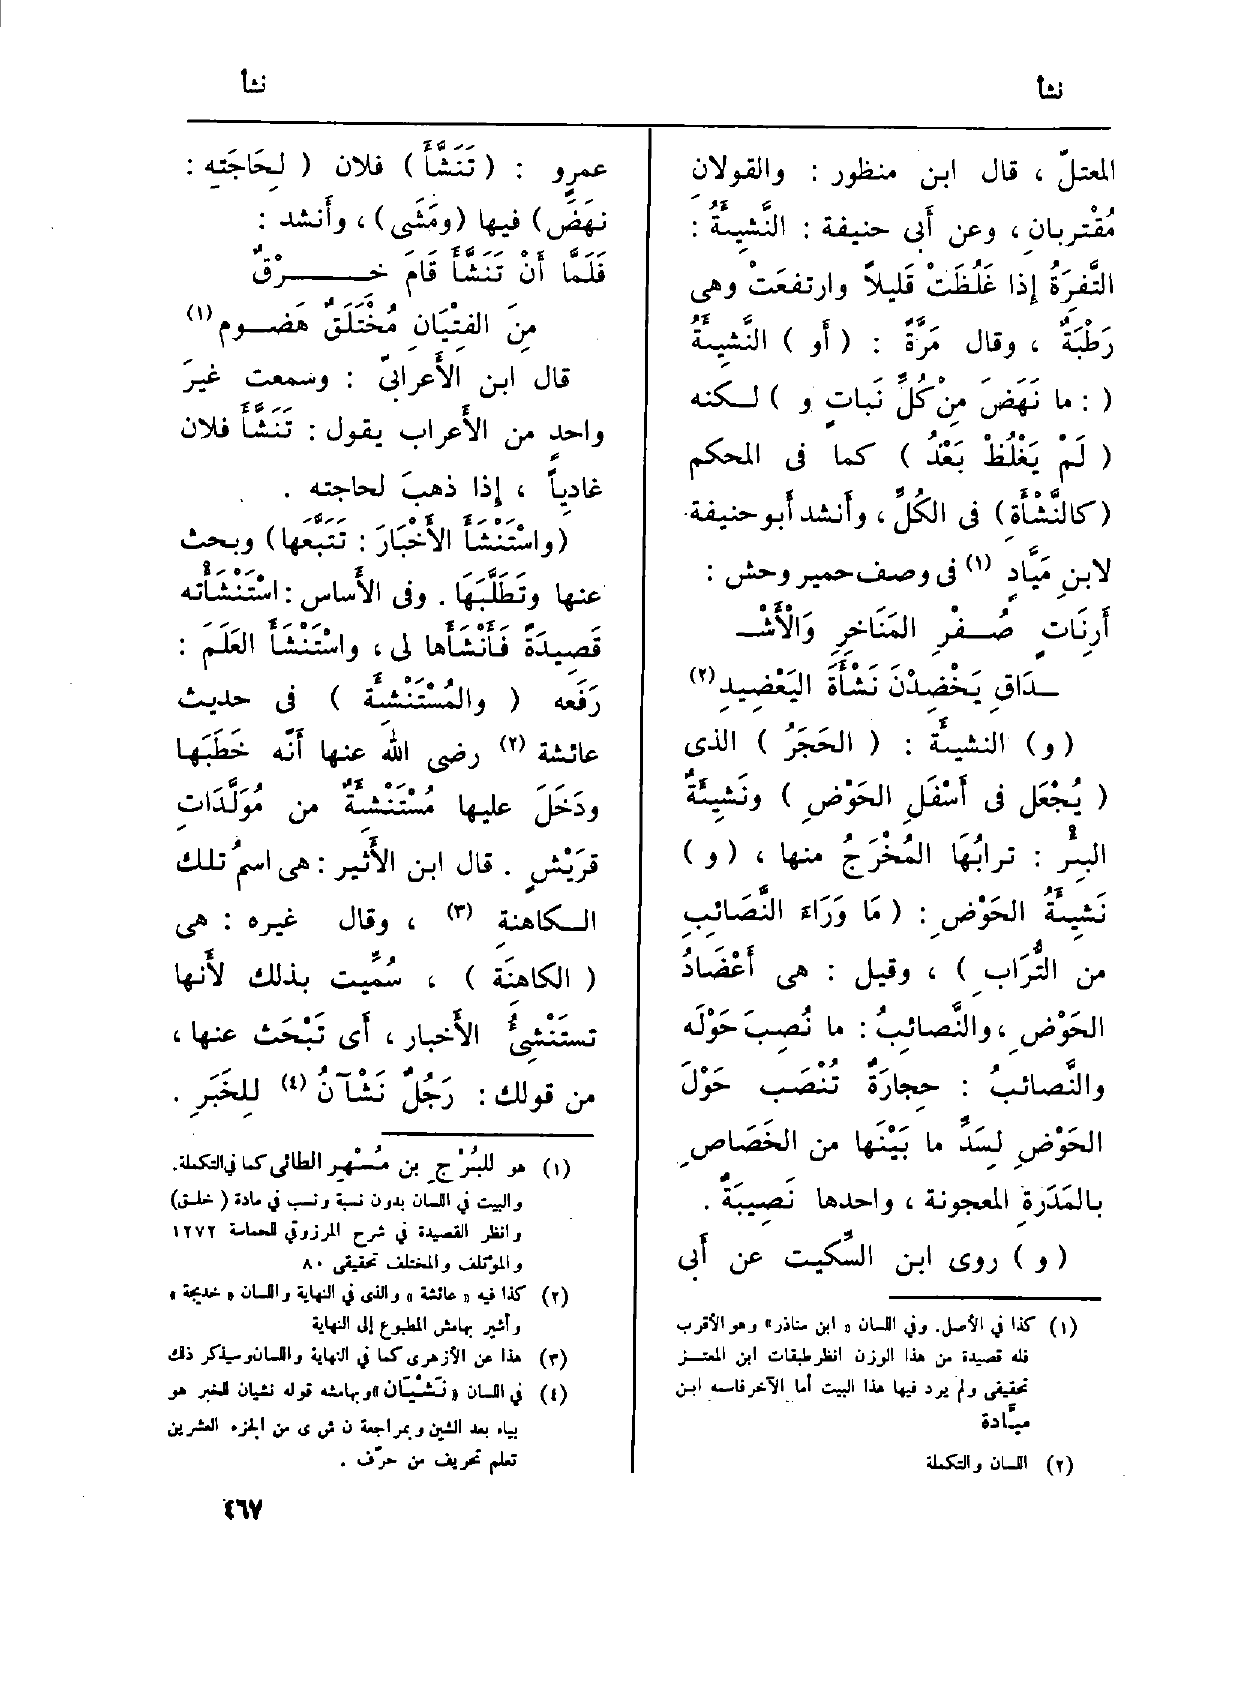 نشأ
نشأ
المعتلّ ، قال ابن منظور : والقولانِ
مُقْتربانِ ، وعن أبى حنيفة : النَّشِيئَةُ :
التَّفِرَةُ إذا غَلُظَتْ قَليلاً وارتفعَتْ وهى
رَطْبَةٌ ، وقال مَرَّةً : ( أَو ) النَّشِيئَةُ
( : ما نَهَضَ مِنْ كُلِّ نَباتٍ و ) لـكنه
( لَمْ يَغْلُظْ بَعْدُ ) كما فى المحكم
( كالنَّشْأَةِ ) فى الكُلِّ ، وأَنشد أَبو حنيفة
لابنِ مَيَّادٍ (١) فى وصف حمير وحش :
أَرِنَاتٍ صُـفْرِ المَنَاخِرِ وَالْأَشْـ
ـدَاقِ يَخْضِدْنَ نَشْأَةَ اليَعْضِيدِ (٢)
( و ) النشيئة : ( الحَجَرُ ) الذى
( يُجْعَل فى أَسْفَلِ الحَوْضِ ) ونَشِيئَةُ
البِئْرِ : ترابُهَا المُخْرَجُ منها ، ( و )
نَشِيئَةُ الحَوْضِ : ( مَا وَرَاءَ النَّصَائِبِ
من التُّرَابِ ) ، وقيل : هى أَعْضَادُ
الحَوْضِ ، والنَّصائبُ : ما نُصِبَ حَوْلَه
والنَّصائبُ : حِجارَةٌ تُنْصَب حَوْلَ
الحَوْضِ لِسَدِّ ما بَيْنَها من الخَصَاصِ
بالمَدَرَةِ المعجونة ، واحدها نَصِيبَةٌ .
( و ) روى ابن السِّكيت عن أَبى
(١) كذا في الأصل. وفي اللسان « ابن مناذر » وهو الأقرب
فله قصيدة من هذا الوزن انظر طبقات ابن المعتـز
تحقيقى ولم يرد فيها هذا البيت أما الآخر فاسمه ابـن
ميَّادة
(٢) اللسان والتكملة
عمرٍو : ( تَنَشَّأَ ) فلان ( لِحَاجَتِهِ :
نهَضَ ) فيها ( ومَشَى ) ، وأَنشد :
فَلَمَّا أَنْ تَنَشَّأَ قَامَ خِــــرْقٌ
مِنَ الفِتْيَانِ مُخْتَلَقٌ هَضُـومُ (١)
قال ابن الأَعرابىّ : وسمعت غيرَ
واحدٍ من الأَعراب يقول : تَنَشَّأَ فلان
غادِياً ، إذا ذهبَ لحاجته .
( واسْتَنْشَأَ الأَخْبَارَ : تَتَبَّعَها ) وبحث
عنها وتَطَلَّبَهَا . وفى الأَساس : اسْتَنْشَأْته
قَصِيدَةً فَأَنْشَأَها لى ، واسْتَنْشَأَ العَلَم :
رَفَعه ( والمُسْتَنْشِئَةُ ) فى حديث
عائشة (٢) رضى اللهُ عنها أَنَّه خَطَبَها
ودَخَلَ عليها مُسْتَنْشِئَةٌ من مُوَلَّدَاتِ
قُرَيْشٍ . قال ابن الأَثير : هى اسمُ تلك
الـكاهنةِ (٣) ، وقال غيره : هى
( الكاهنَة ) ، سُمِّيت بذلك لأَنها
تستَنْشِئُ الأَخبار ، أَى تَبْحَث عنها ،
من قولك : رَجُلٌ نَشْآنُ (٤) للخَبَرِ .
(١) هو للبُرْجِ بن مُسْهِر الطائى كما في التكملة.
والبيت في اللسان بدون نسبة ونسب في مادة ( خلـق )
وانظر القصيدة في شرح المرزوقى للحماسة ١٢٧٢
والمؤتلف والمختلف تحقيقى ٨٠
(٢) كذا فيه « عائشة » والذى في النهاية واللسان « خديجة »
وأشير بهامش المطبوع إلى النهاية
(٣) هذا عن الأزهرى كما في النهاية واللسان وسيذكر ذلك
(٤) في اللسان « نَشْيَان » وبهامشه قوله نشيان للخبر هو
بياء بعد الشين وبمراجعة ن ش ى من الجزء العشرين
تعلم تحريف من حرّف .
٤٦٧